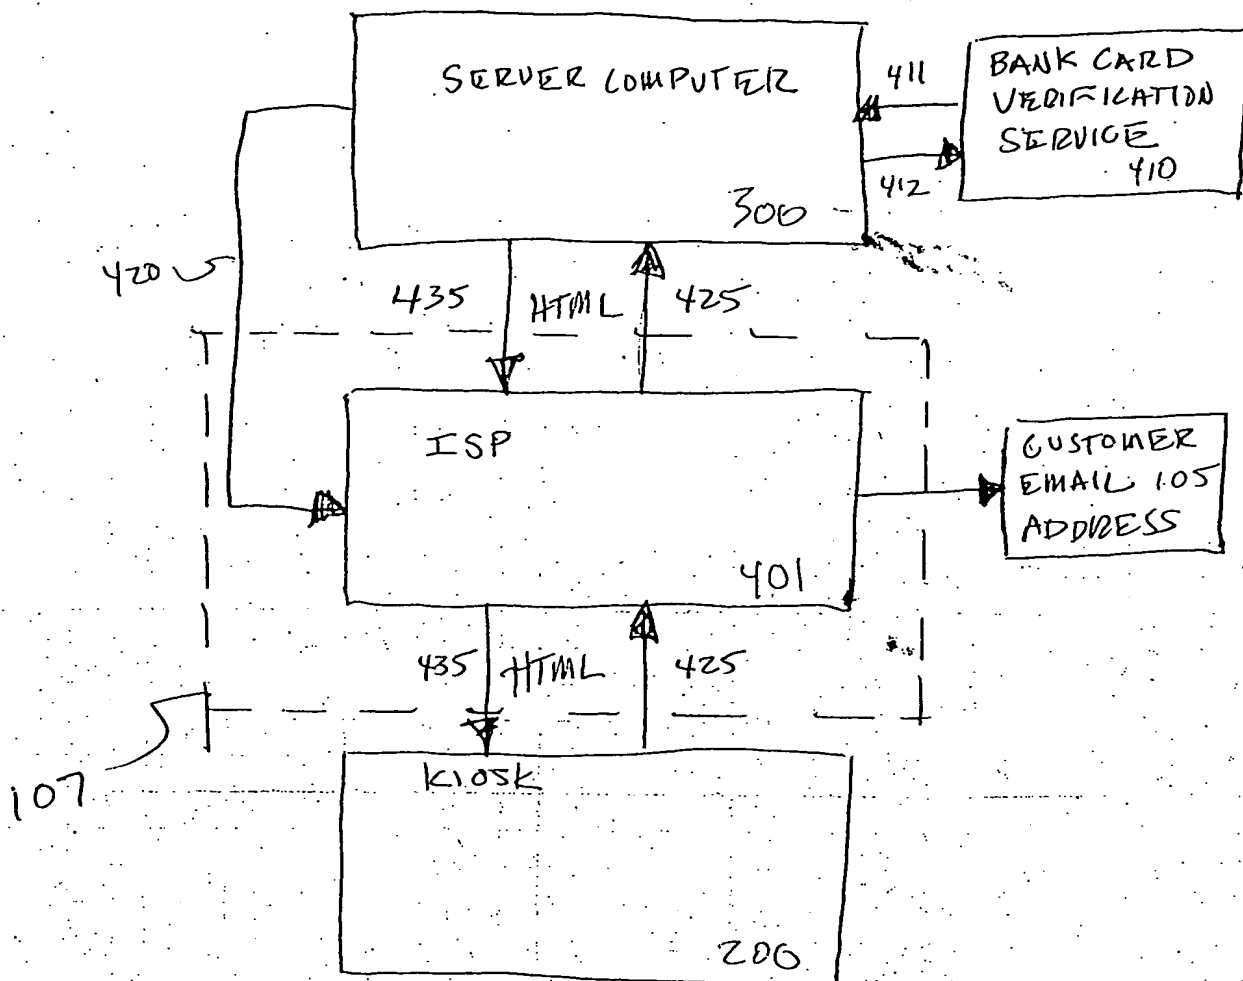 SERVER COMPUTER
300
411
412
BANK CARD
VERIFICATION
SERVICE
410
420
435 HTML 425
ISP
401
CUSTOMER
EMAIL 105
ADDRESS
435 HTML 425
107
KIOSK
200